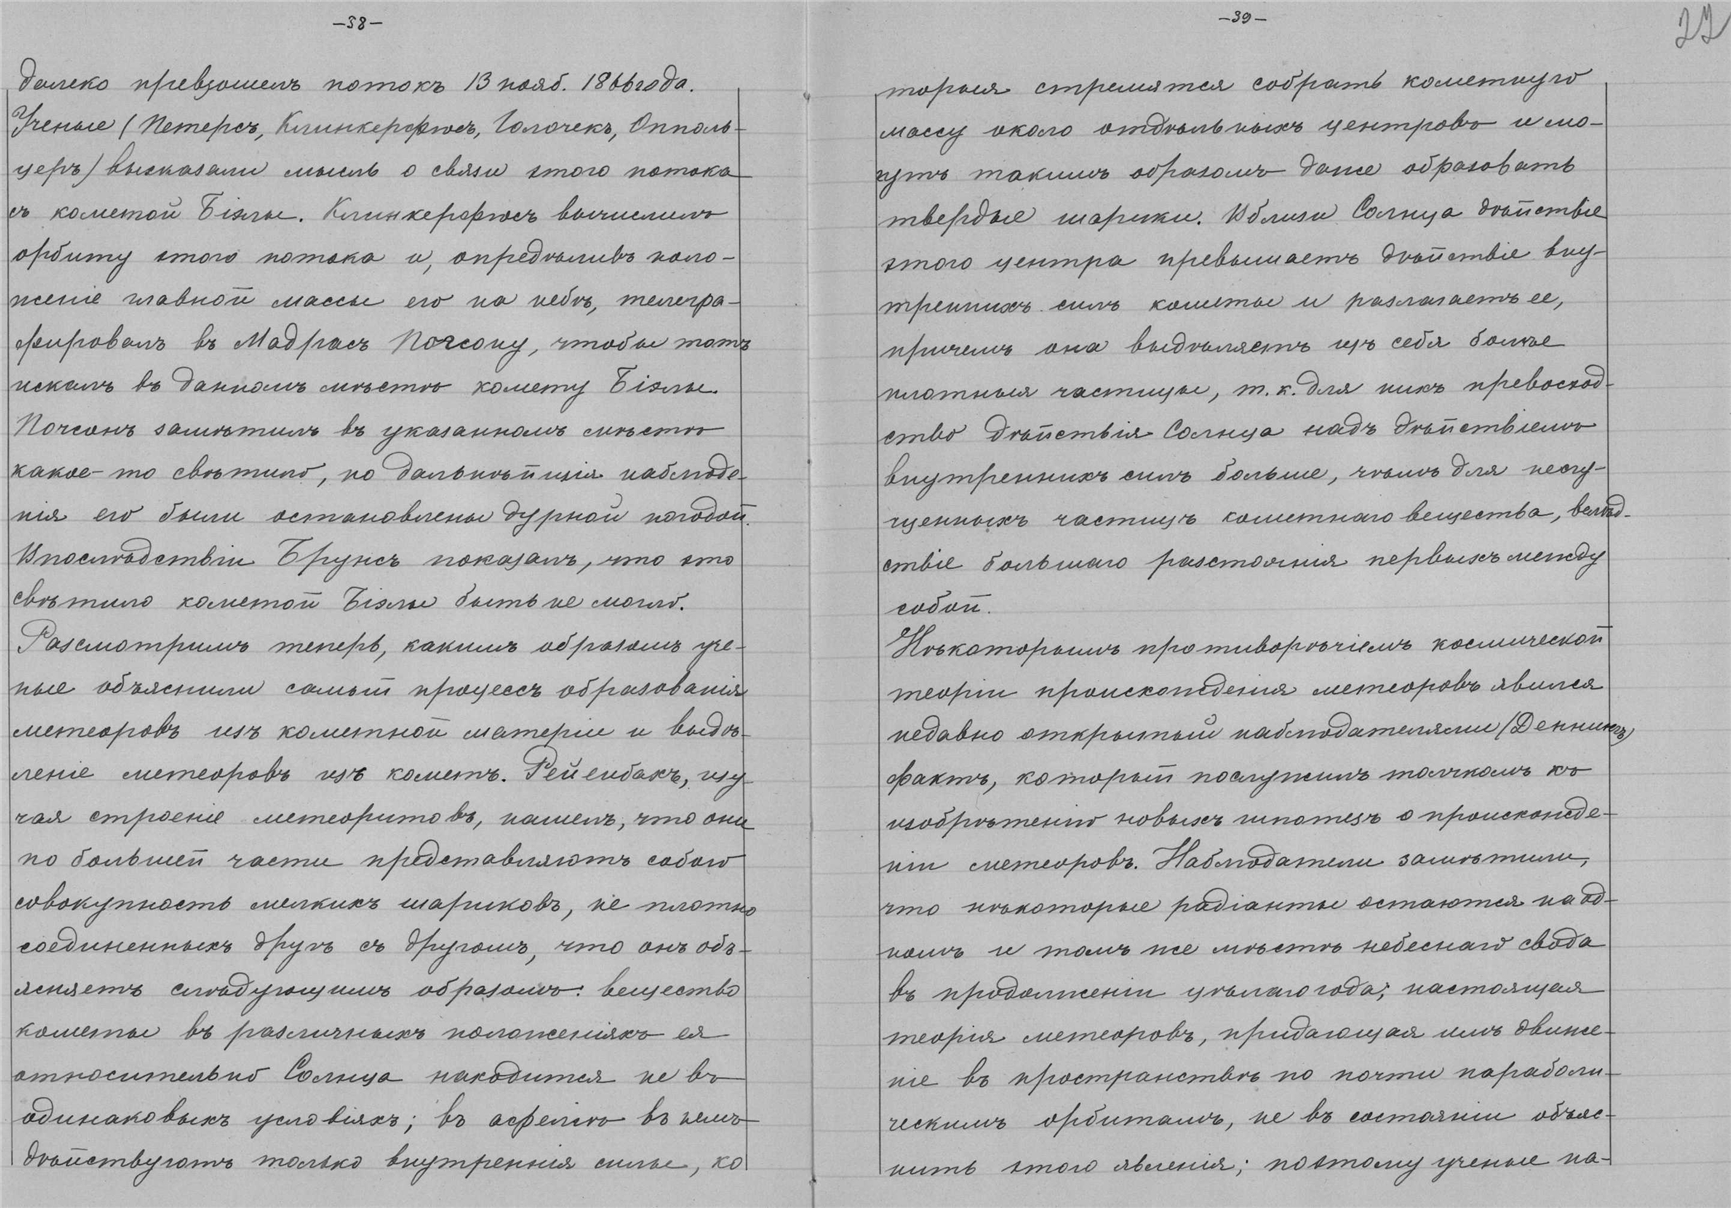 —38—
далеко превзошелъ потокъ 13 нояб. 1866 года.
Ученые (Петерсъ, Клинкерфюсъ, Голочекъ, Опполь-
церъ) высказали мысль о связи этого потока
съ кометой Біэлы. Клинкерфюсъ вычислилъ
орбиту этого потока и, опредѣливъ поло-
женіе главной массы его на небѣ, телегра-
фировалъ въ Мадрасъ Погсону, чтобы тотъ
искалъ въ данномъ мѣстѣ комету Біэлы.
Погсонъ замѣтилъ въ указанномъ мѣстѣ
какое-то свѣтило, но дальнѣйшія наблюде-
нія его были остановлены дурной погодой.
Впослѣдствіи Брунсъ показалъ, что это
свѣтило кометой Біэлы быть не могло.
Разсмотримъ теперь, какимъ образомъ уче-
ные объяснили самый процессъ образованія
метеоровъ изъ кометной матеріи и выдѣ-
леніе метеоровъ изъ кометъ. Рейенбахъ, изу-
чая строеніе метеоритовъ, нашелъ, что они
по большей части представляютъ собою
совокупность мелкихъ шариковъ, не плотно
соединенныхъ другъ съ другомъ, что онъ объ-
ясняетъ слѣдующимъ образомъ: вещество
кометы въ различныхъ положеніяхъ ея
относительно Солнца находится не въ
одинаковыхъ условіяхъ; въ афеліѣ въ немъ
дѣйствуютъ только внутреннія силы, ко
—39—
22
торыя стремятся собрать кометную
массу около отдѣльныхъ центровъ и мо-
гутъ такимъ образомъ даже образовать
твердые шарики. Вблизи Солнца дѣйствіе
этого центра превышаетъ дѣйствіе вну-
треннихъ силъ кометы и разлагаетъ ее,
причемъ она выдѣляетъ изъ себя болѣе
плотныя частицы, т.к. для нихъ превосход-
ство дѣйствія Солнца надъ дѣйствіемъ
внутреннихъ силъ больше, чѣмъ для несгу-
щенныхъ частицъ кометнаго вещества, вслѣд-
ствіе большаго разстоянія первыхъ между
собой.
Нѣкоторымъ противорѣчіемъ космической
теоріи происхожденія метеоровъ явился
недавно открытый наблюдателями (Деннингъ)
фактъ, который послужилъ толчкомъ къ
изобрѣтенію новыхъ гипотезъ о происхожде-
ніи метеоровъ. Наблюдатели замѣтили,
что нѣкоторые радіанты остаются на од-
номъ и томъ же мѣстѣ небеснаго свода
въ продолженіи цѣлаго года; настоящая
теорія метеоровъ, придающая имъ движе-
ніе въ пространствѣ по почти параболи-
ческимъ орбитамъ, не въ состояніи объяс-
нить этого явленія; поэтому ученые на-